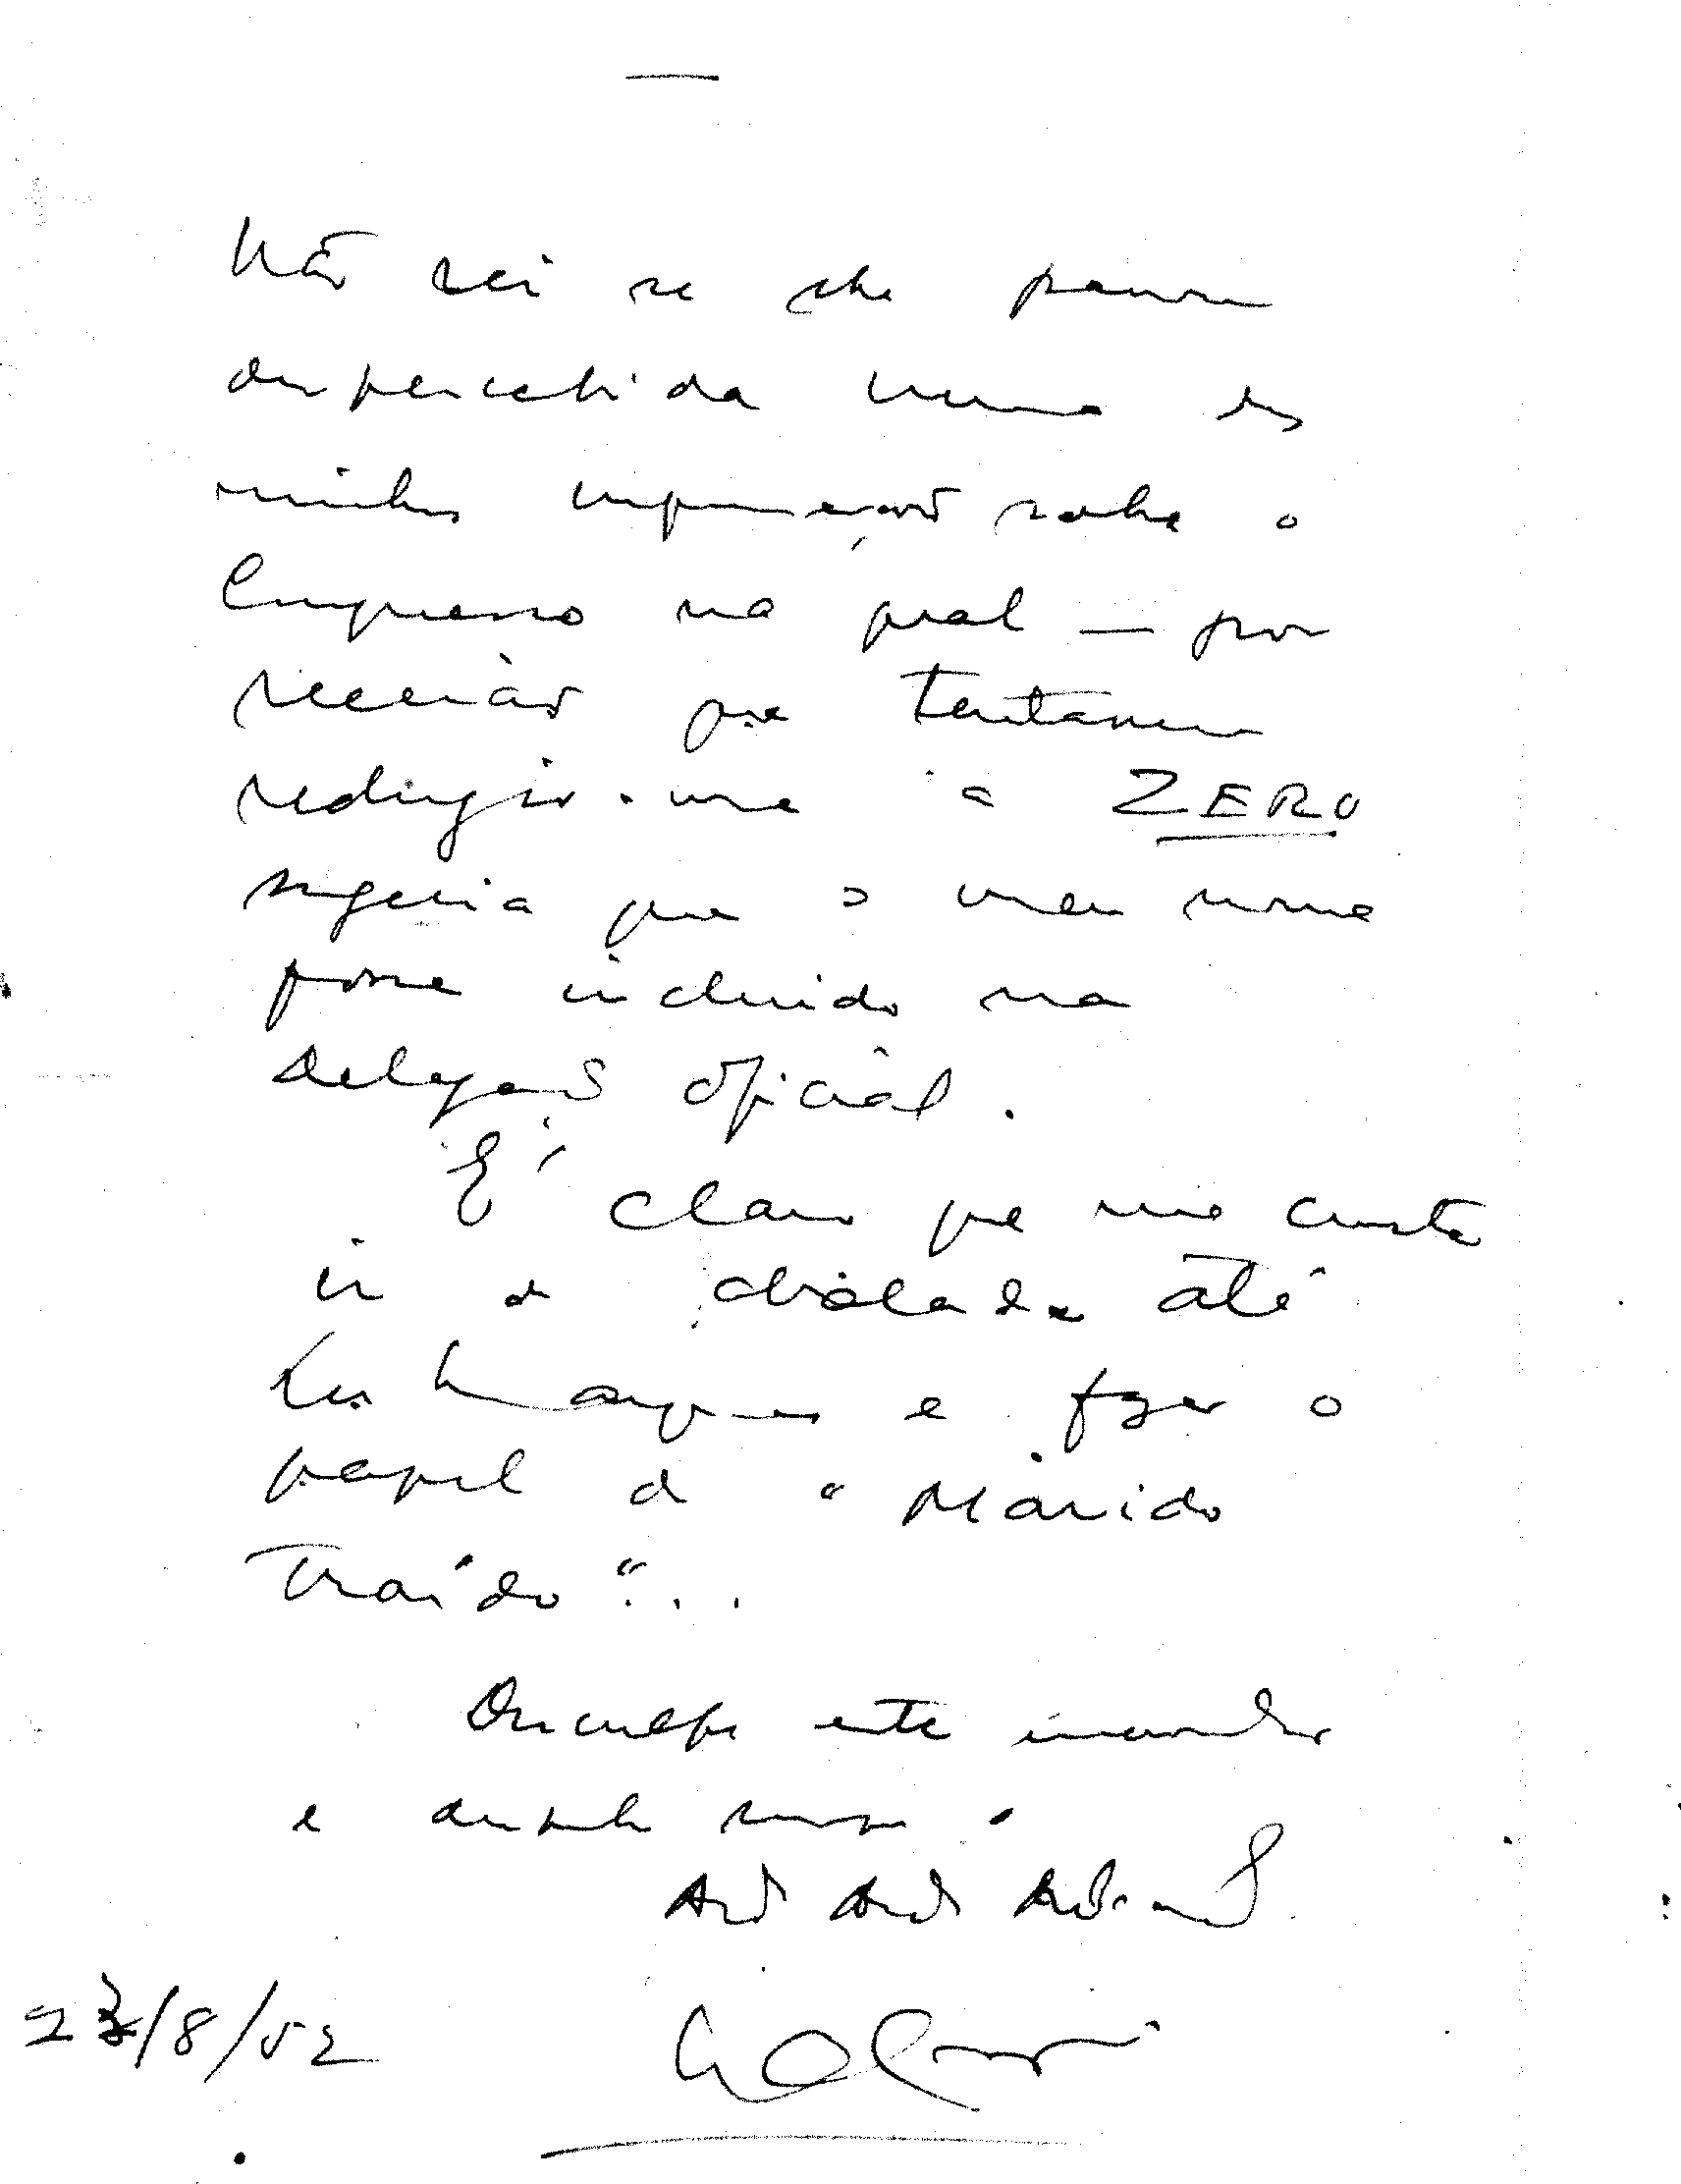 Não sei se lhe passou
despercebida numa das
minhas informações sobre o
Congresso na qual — por
recear que tentassem
reduzir-me a ZERO
sugeria que o meu nome
fosse incluido na
Delegação oficial.
É claro que me custa
ir de abalada até
e fazer o
papel de "Marido
Traído"...
Desculpe este
e sempre.
23/8/52